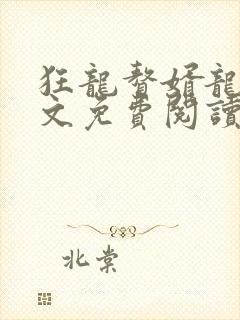 狂龍贅婿龍
文免費閱讀
北棠